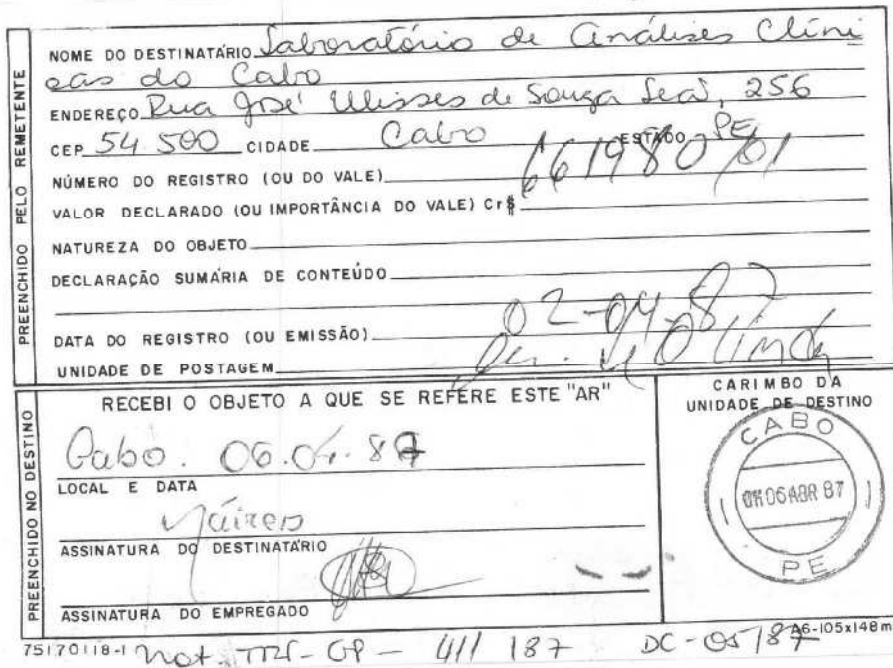 PREENCHIDO PELO REMETENTE
NOME DO DESTINATÁRIO Laboratório de Análises Clíni
cas do Cabo
ENDEREÇO Rua José Ulisses de Souza Leão, 256
CEP 54.500 CIDADE Cabo ESTADO PE
NÚMERO DO REGISTRO (OU DO VALE) 661980/01
VALOR DECLARADO (OU IMPORTÂNCIA DO VALE) Cr$
NATUREZA DO OBJETO
DECLARAÇÃO SUMÁRIA DE CONTEÚDO
DATA DO REGISTRO (OU EMISSÃO) 02-04-87
UNIDADE DE POSTAGEM Olinda
PREENCHIDO NO DESTINO
RECEBI O OBJETO A QUE SE REFERE ESTE "AR"
Cabo. 06.04.87
LOCAL E DATA
ASSINATURA DO DESTINATÁRIO
ASSINATURA DO EMPREGADO
CARIMBO DA
UNIDADE DE DESTINO
CABO
06 ABR 87
PE
75170118-1
A6-105x148m
Not. TRT-GP - 411 187 DC-05/87